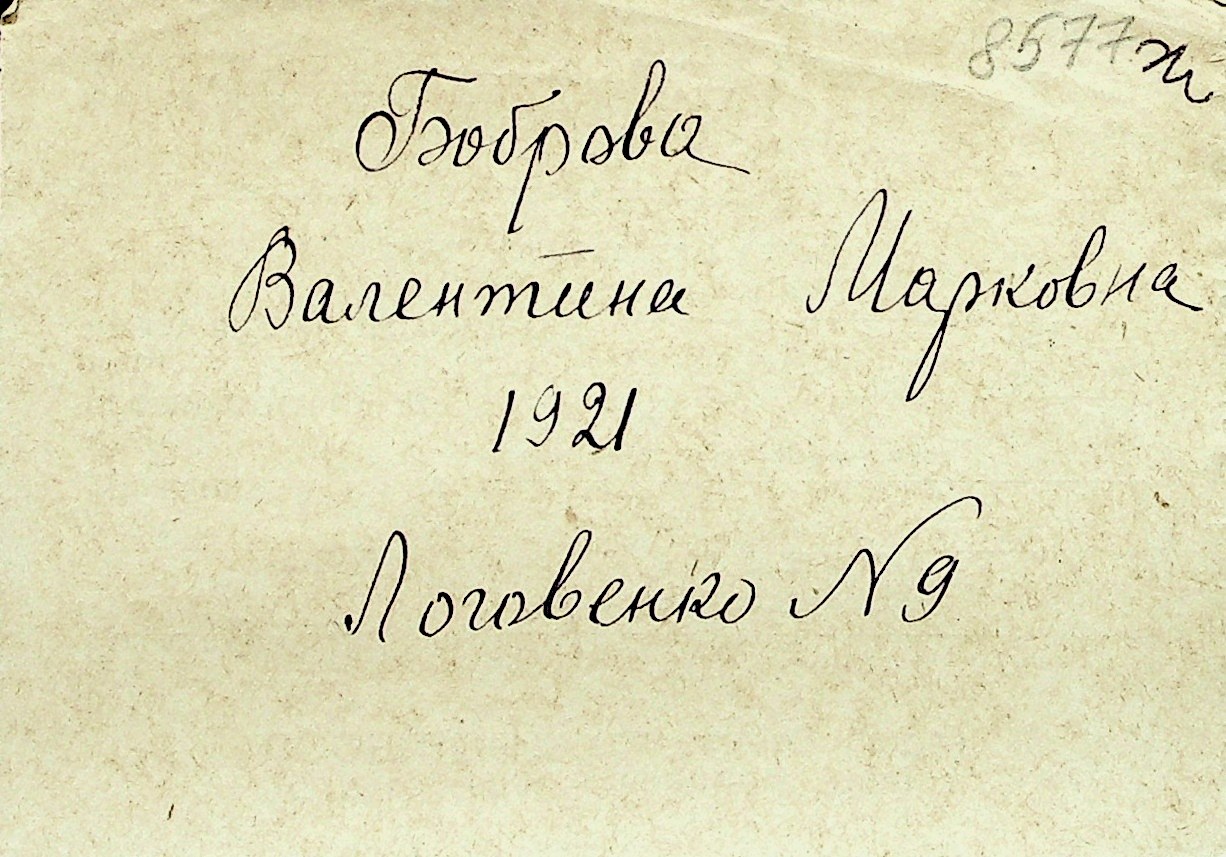 8577 ж
Боброва
Валентина Марковна
1921
Логовенко N 9